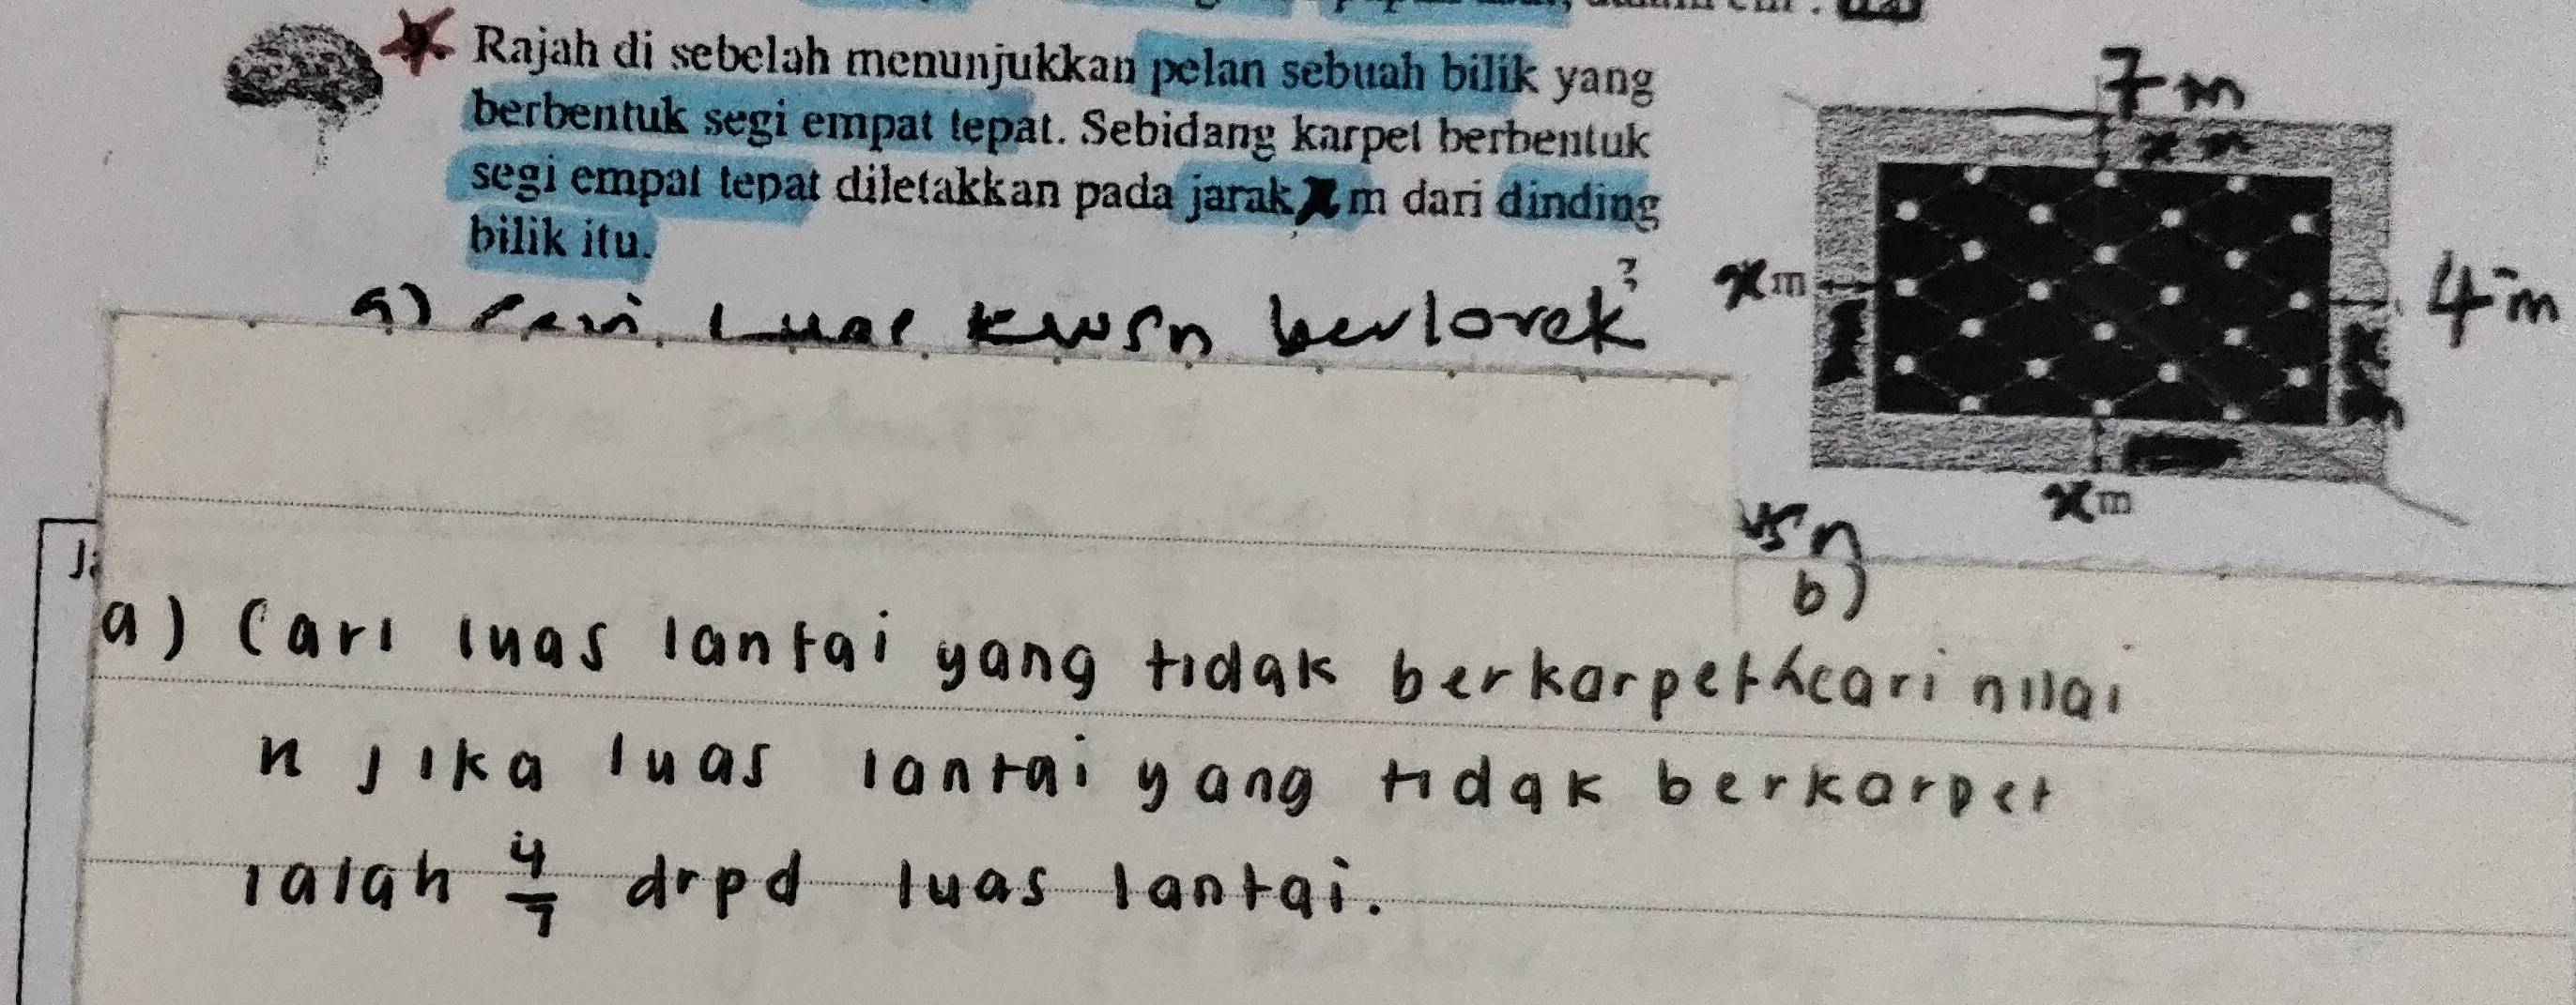 9. Rajah di sebelah menunjukkan pelan sebuah bilik yang
berbentuk segi empat tepat. Sebidang karpet berbentuk
segi empat tepat diletakkan pada jarak x m dari dinding
bilik itu.
7 m
x m
x m
4 m
x m
a) Cari luas kwsn berlorek
b)
a) Cari luas lantai yang tidak berkarpet & cari nilai
x jika luas lantai yang tidak berkarpet
ialah 4/7 drpd luas lantai.